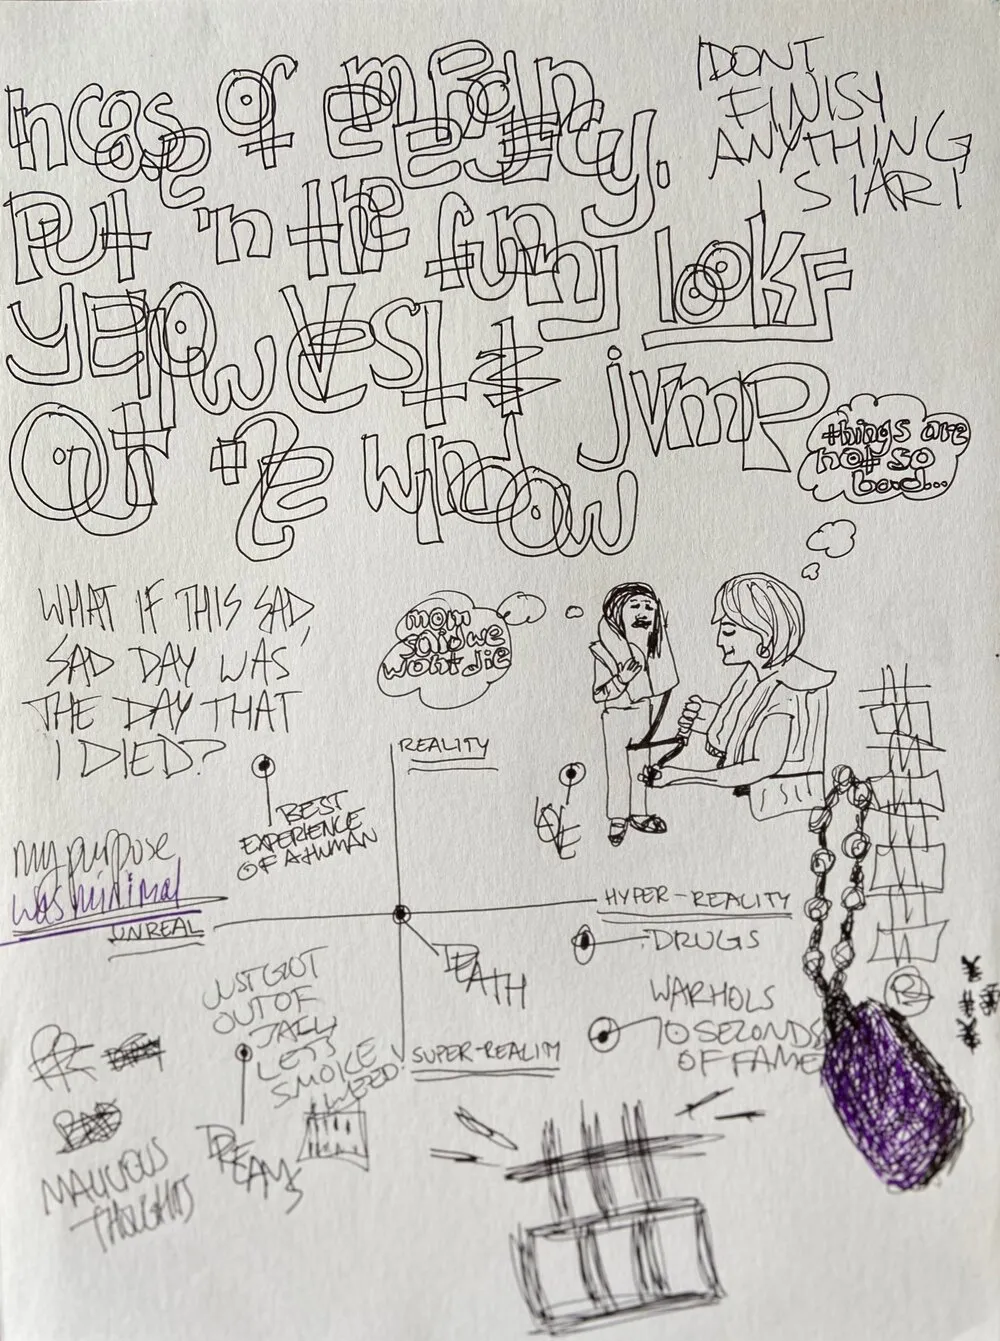 incase of emergency.
Put 'n the funny lookF
YEllow Vest & jump
Out the window
I DONT
FINISH
ANYTHING
I START
things are
not so
bad...
WHAT IF THIS SAD,
SAD DAY WAS
THE DAY THAT
I DIED?
mom
said we
wont die
REALITY
BEST
EXPERIENCE
OF A HUMAN
my purpose
was minimal
UNREAL
HYPER-REALITY
DEATH
DRUGS
JUST GOT
OUT OF
JAIL
LETS
SMOKE
WEED!
SUPER-REALITY
WARHOLS
10 SECONDS
OF FAME
BAD
MALICIOUS
THOUGHTS
DREAMS